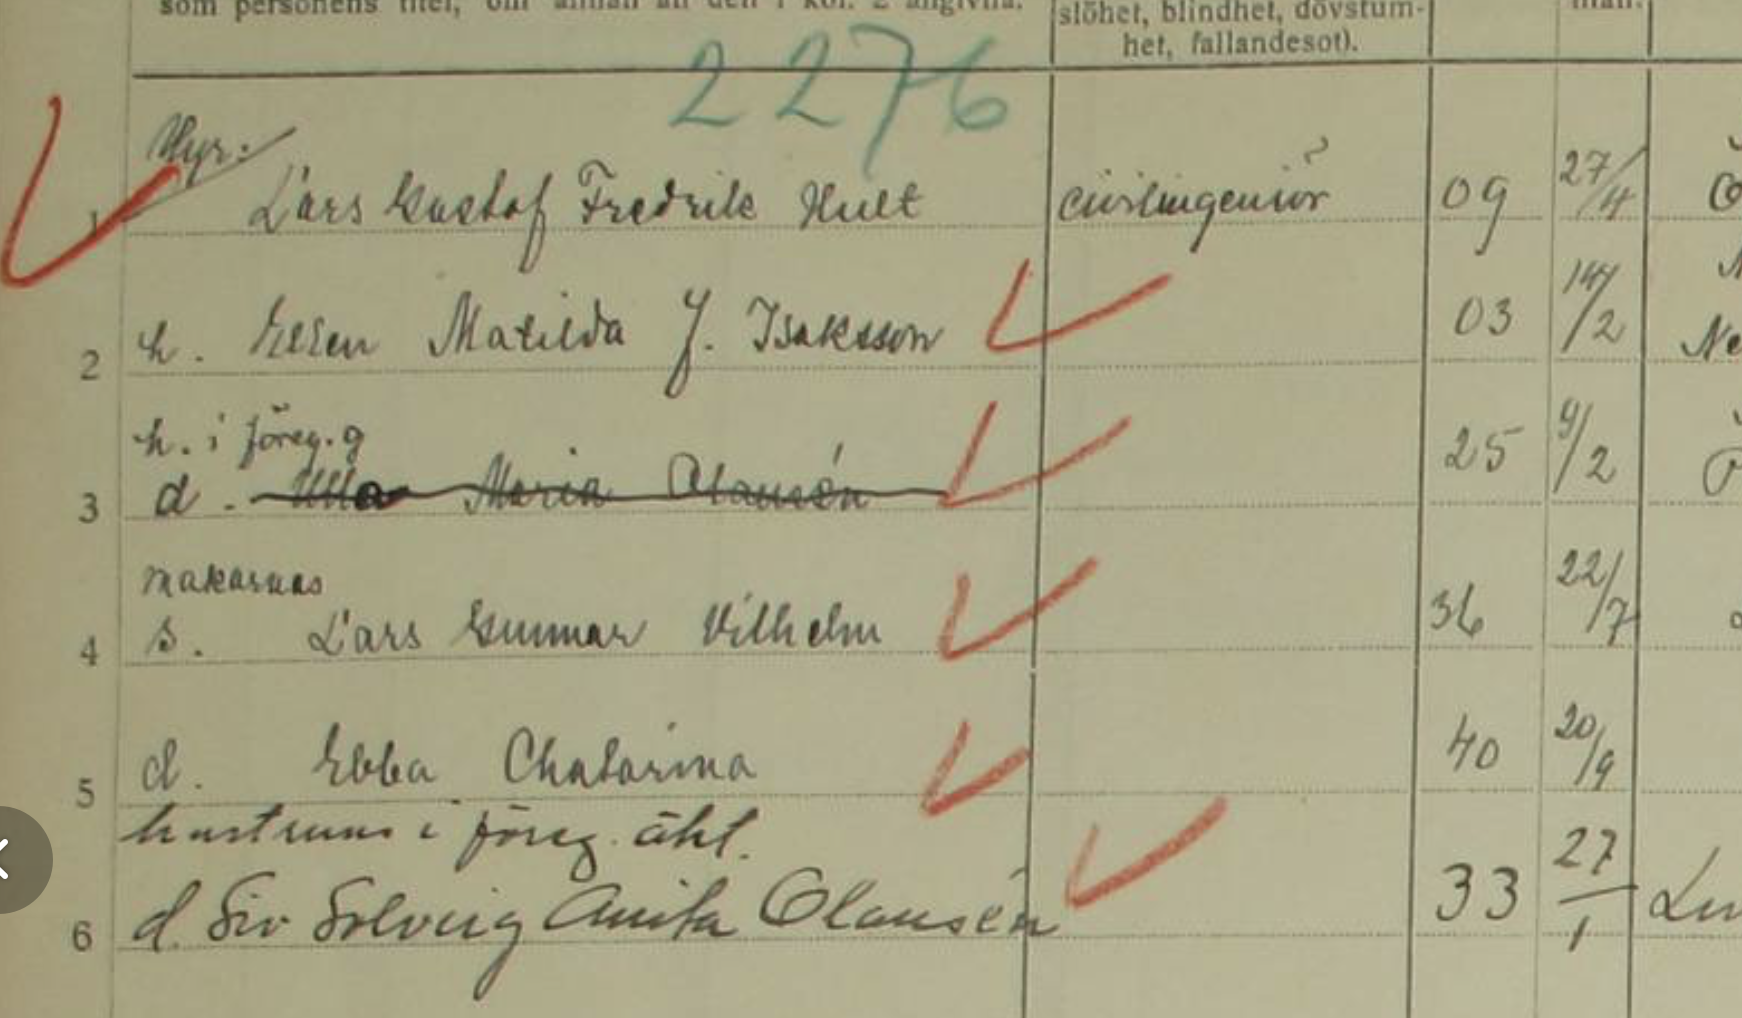 som personens titel, om annan än den i kol. 2 angivna.
slöhet, blindhet, dövstum-
het, fallandesot).
2276
Hyr.
1 Lars Gustaf Fredrik Hult civilingeniör 09 27/4
2 h. Ellen Matilda J. Isaksson 03 14/2 Ne
h. i föreg. g
3 d. Ulla Maria Olausén 25 9/2
makarnas
4 s. Lars Gunnar Vilhelm 36 22/7
5 d. Ebba Chatarina 40 20/9
hustruns i föreg. äkt.
6 d. Siv Solveig Anita Olausén 33 27/1